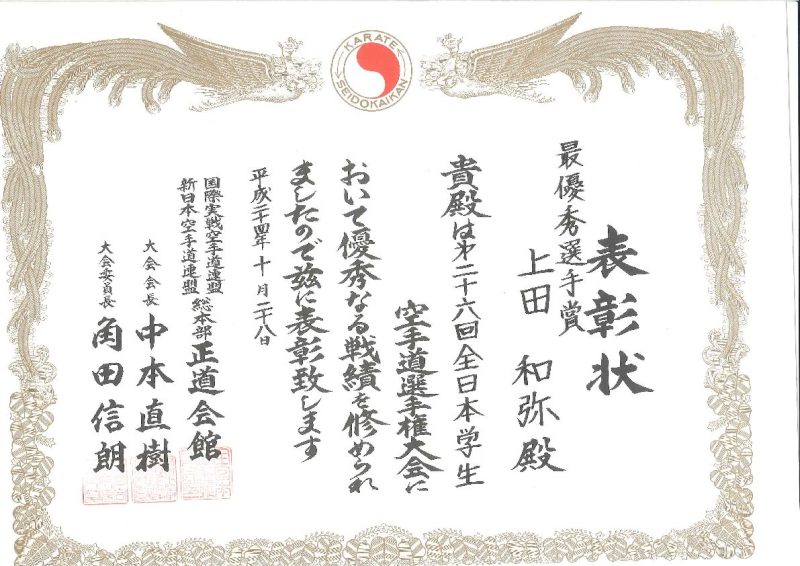 KARATE
SEIDOKAIKAN
表彰状
最優秀選手賞
上田 和弥殿
貴殿は第二十六回全日本学生
空手道選手権大会に
おいて優秀なる戦績を修められ
ましたので茲に表彰致します
平成二十四年十月二十八日
国際実戦空手道連盟
新日本空手道連盟
総本部 正道会館
大会会長 中本直樹
大会委員長 角田信朗